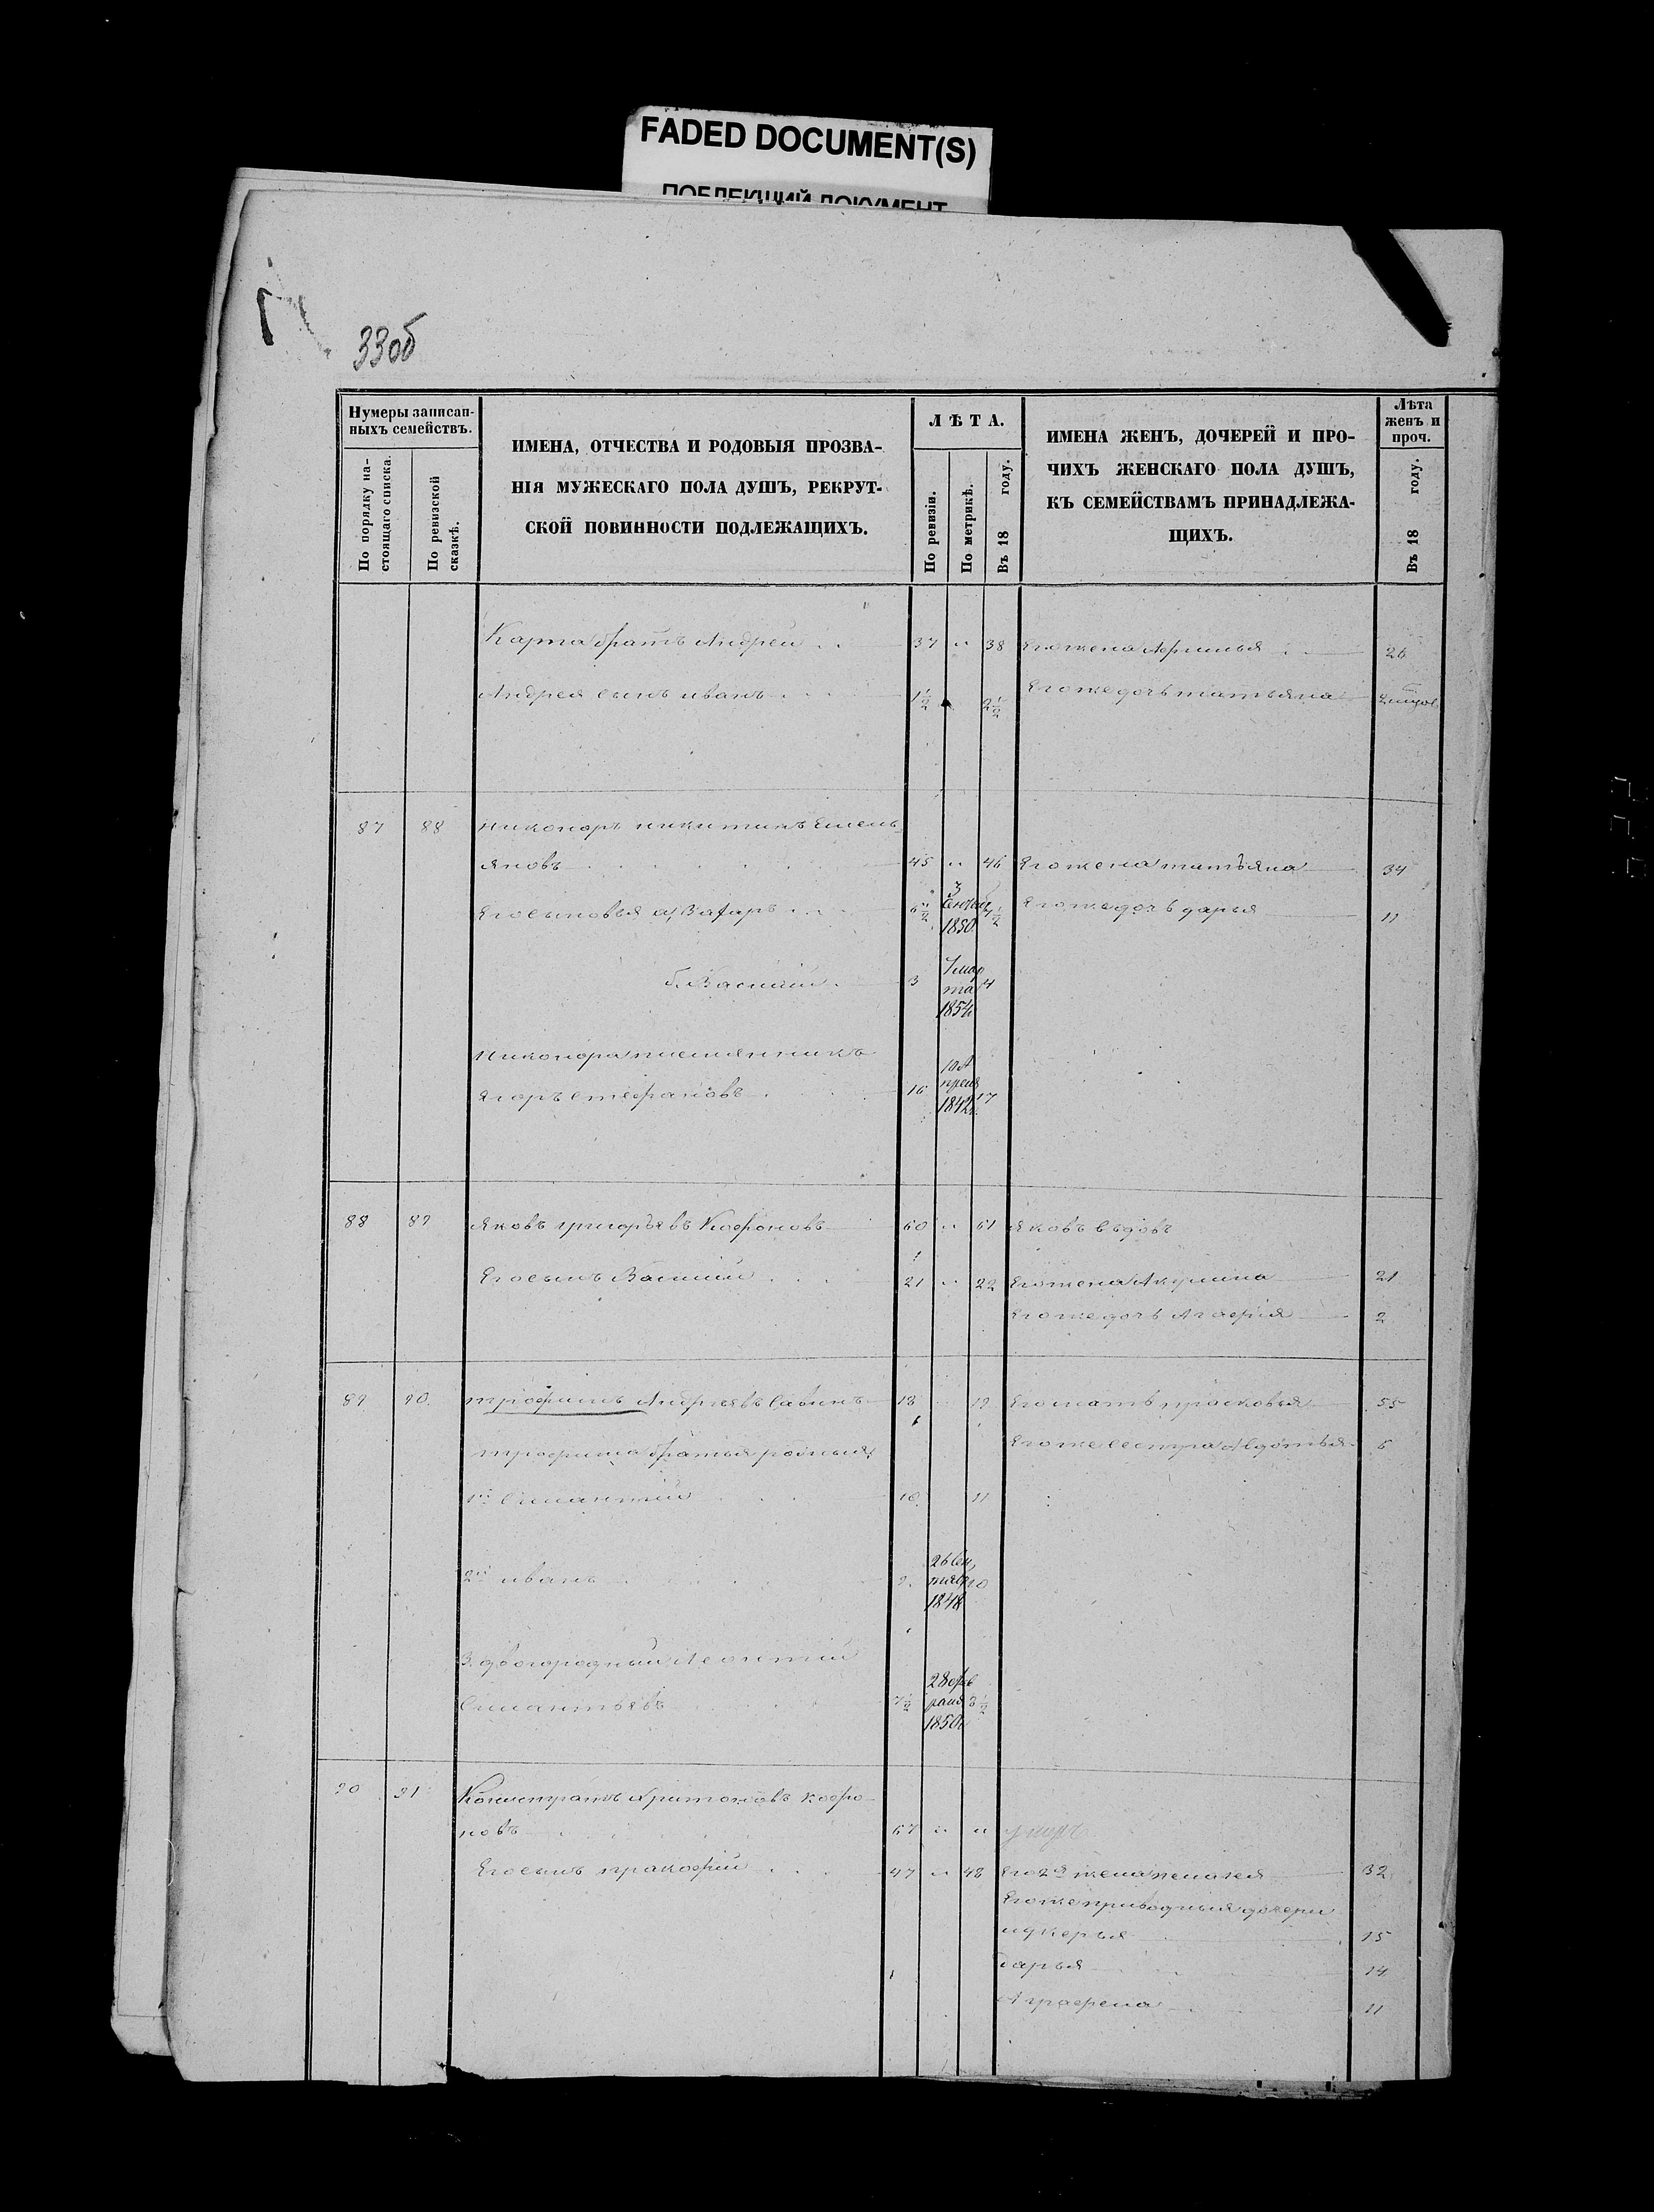 FADED DOCUMENT(S)
ПОБЛЕКШИЙ ДОКУМЕНТ
33об
Нумеры записан-
ныхъ семействъ.
По порядку на-
стоящаго списка.
По ревизской
сказкѣ.
ИМЕНА, ОТЧЕСТВА И РОДОВЫЯ ПРОЗВА-
НІЯ МУЖЕСКАГО ПОЛА ДУШЪ, РЕКРУТ-
СКОЙ ПОВИННОСТИ ПОДЛЕЖАЩИХЪ.
ЛѢТА.
По ревизіи.
По метрикѣ.
Въ 18 году.
ИМЕНА ЖЕНЪ, ДОЧЕРЕЙ И ПРО-
ЧИХЪ ЖЕНСКАГО ПОЛА ДУШЪ,
КЪ СЕМЕЙСТВАМЪ ПРИНАДЛЕЖА-
ЩИХЪ.
Лѣта
женъ и
проч.
Въ 18 году.
Карпа братъ Андрей 37 " 38 Его жена 26
Андрея сынъ иванъ 1½ 2½ Его же дочь татьяна
87 88 никоноръ никитинъ Емель
яновъ 45 " 46 Его жена татьяна 34
Его сыновья а, Захаръ 6½ 3 1850 7½ Его же дочь дарья 11
б. Василий 3 7 мар
та 4
1854
никонора племянникъ
Егоръ стефановъ 16 10 А
преля 17
1842
88 89 Яковъ григорьевъ Кофоновъ 60 " 61 Яковъ вдовъ
Его сынъ Василий 21 " 22 Его жена Акулина 21
Его же дочь Агафия 2
89 90 трофимъ Андреевъ Савинъ 18 19 Его мать прасковья 55
трофима братья родныя: Его же сестра Авдотья 6
1й 10 11
2й иванъ 9 26 Сен
тября 10
1848
3. двоюродный Леонтий
7½ 28 фев
раля 8½
1850
90 91 Каллистратъ Аритоновъ кофо
новъ 67 " " умеръ
Его сынъ пракофий 47 " 48 Его 2я жена пелагея 32
Его же приводныя дочери
лукерья 15
дарья 14
Аграфена 11